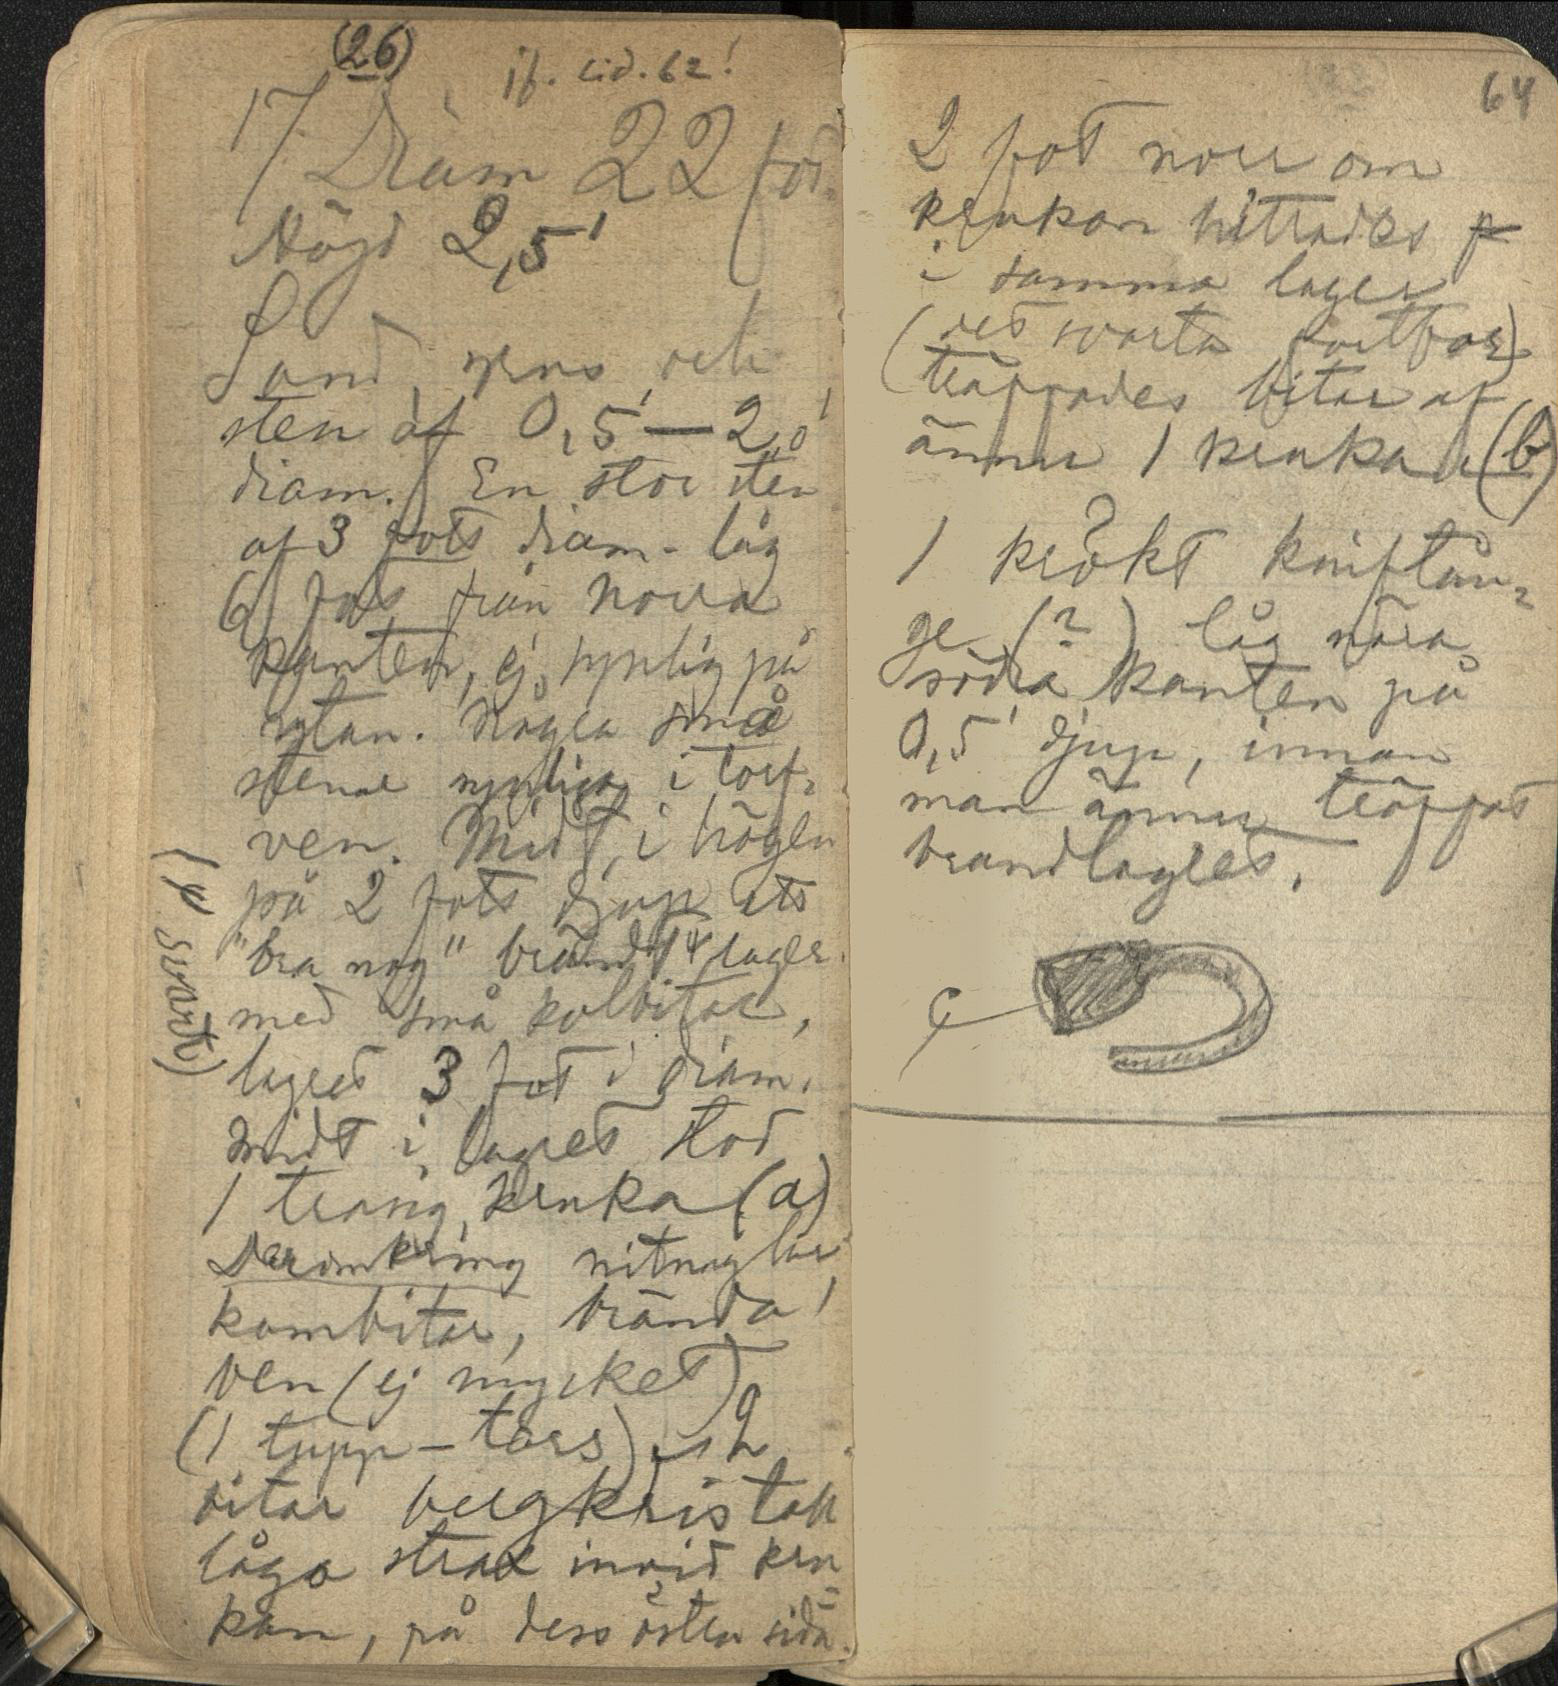 (26)
jf. sid. 62!
17. Diam 22 fot.
Högd 2,5'
Sand, grus och
sten af 0,5'—2,0'
diam. En stor sten
af 3 fots diam. låg
6 fot från norra
kanten, ej synlig på
ytan. Några små
stenar synliga i torf-
ven. Midt i högen
på 2 fots djup ett
"bra nog" brändt # lager
(# svart)
med små kolbitar,
lagret 3 fot i diam.
Midt i lagret stod
1 trasig kruka (a)
Deromkring nitnaglar,
kambitar, brända
ben (ej mycket)
(1 tupp-tars), 2
bitar bergkristall
låga strax invid kru
kan, på dess östra sida.
64
2 fot norr om
krukan hittades p
i samma lager
(det svarta
träffades bitar af
ännu 1 kruka (b)
1 krökt kniftån-
ge (?) låg nära
södra kanten på
0,5' djup, innan
man ännu träffat
brandlagret.
c